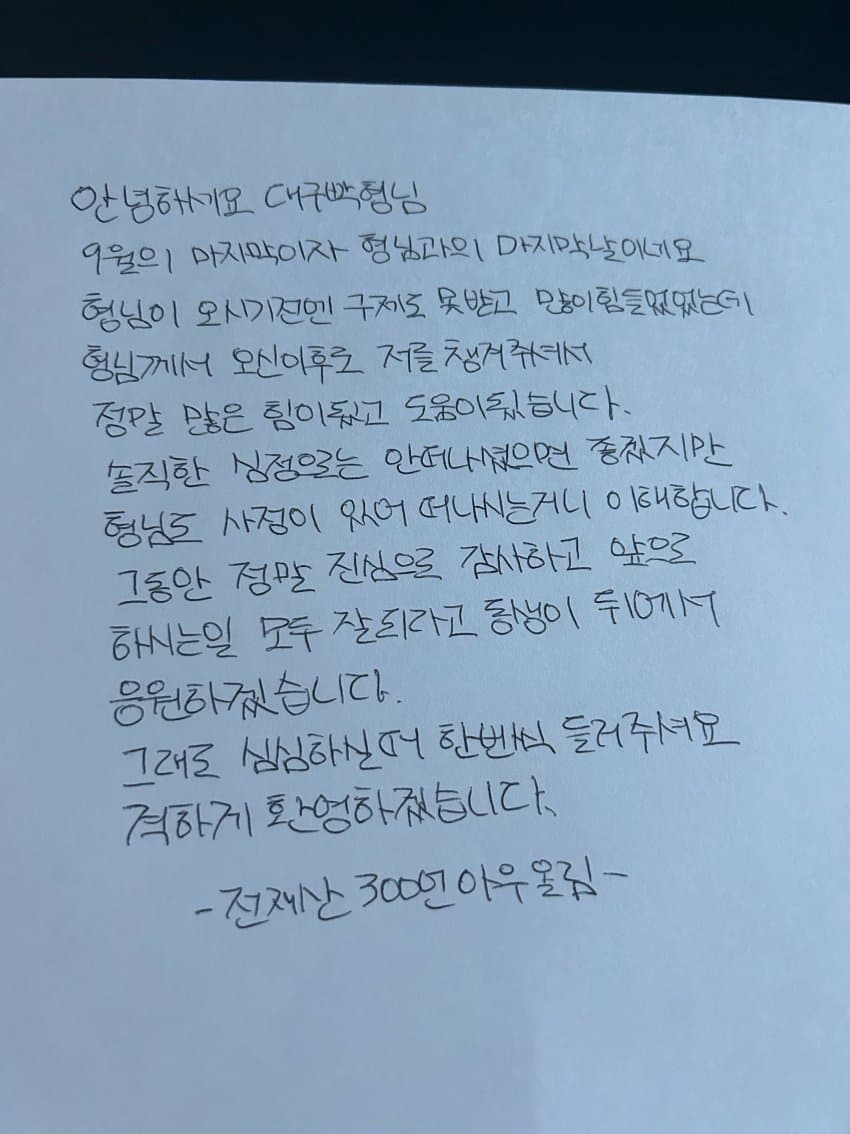 안녕하세요 대구박형님
9월의 마지막이자 형님과의 마지막날이네요
형님이 오시기전엔 구제도 못받고 많이힘들었었는데
형님께서 오신이후로 저를 챙겨주셔서
정말 많은 힘이됬고 도움이됬습니다.
솔직한 심정으로는 안떠나셨으면 좋겠지만
형님도 사정이 있어 떠나시는거니 이해합니다.
그동안 정말 진심으로 감사하고 앞으로
하시는일 모두 잘되라고 동생이 뒤에서
응원하겠습니다.
그래도 심심하실때 한번씩 들러주셔요
격하게 환영하겠습니다.
-전재산 300언 아우올림-